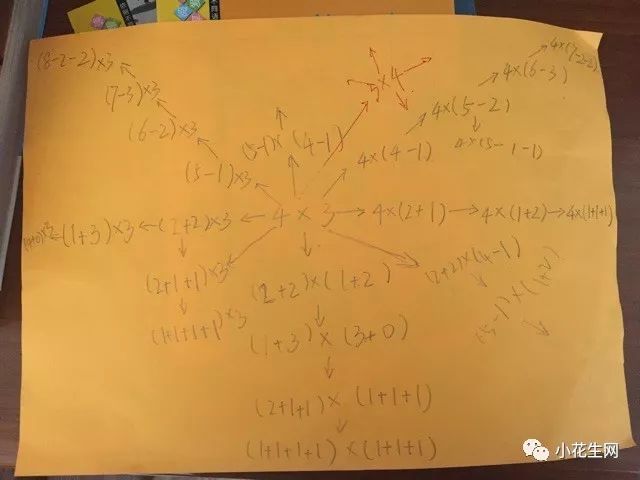 (8-2-2)×3
(7-3)×3
(6-2)×3
(5-1)×3
(5-1)×(4-1)
5×4
4×(7-2-2)
4×(6-3)
4×(5-2)
4×(5-1-1)
4×(4-1)
(1+3)×3
(2+2)×3
4×3
4×(2+1)
4×(1+2)
4×(1+1+1)
(2+1+1)×3
(1+1+1+1)×3
(2+2)×(1+2)
(2+2)×(4-1)
(5-1)×(1+2)
(1+3)×(3+0)
(2+1+1)×(1+1+1)
(1+1+1+1)×(1+1+1)
小花生网